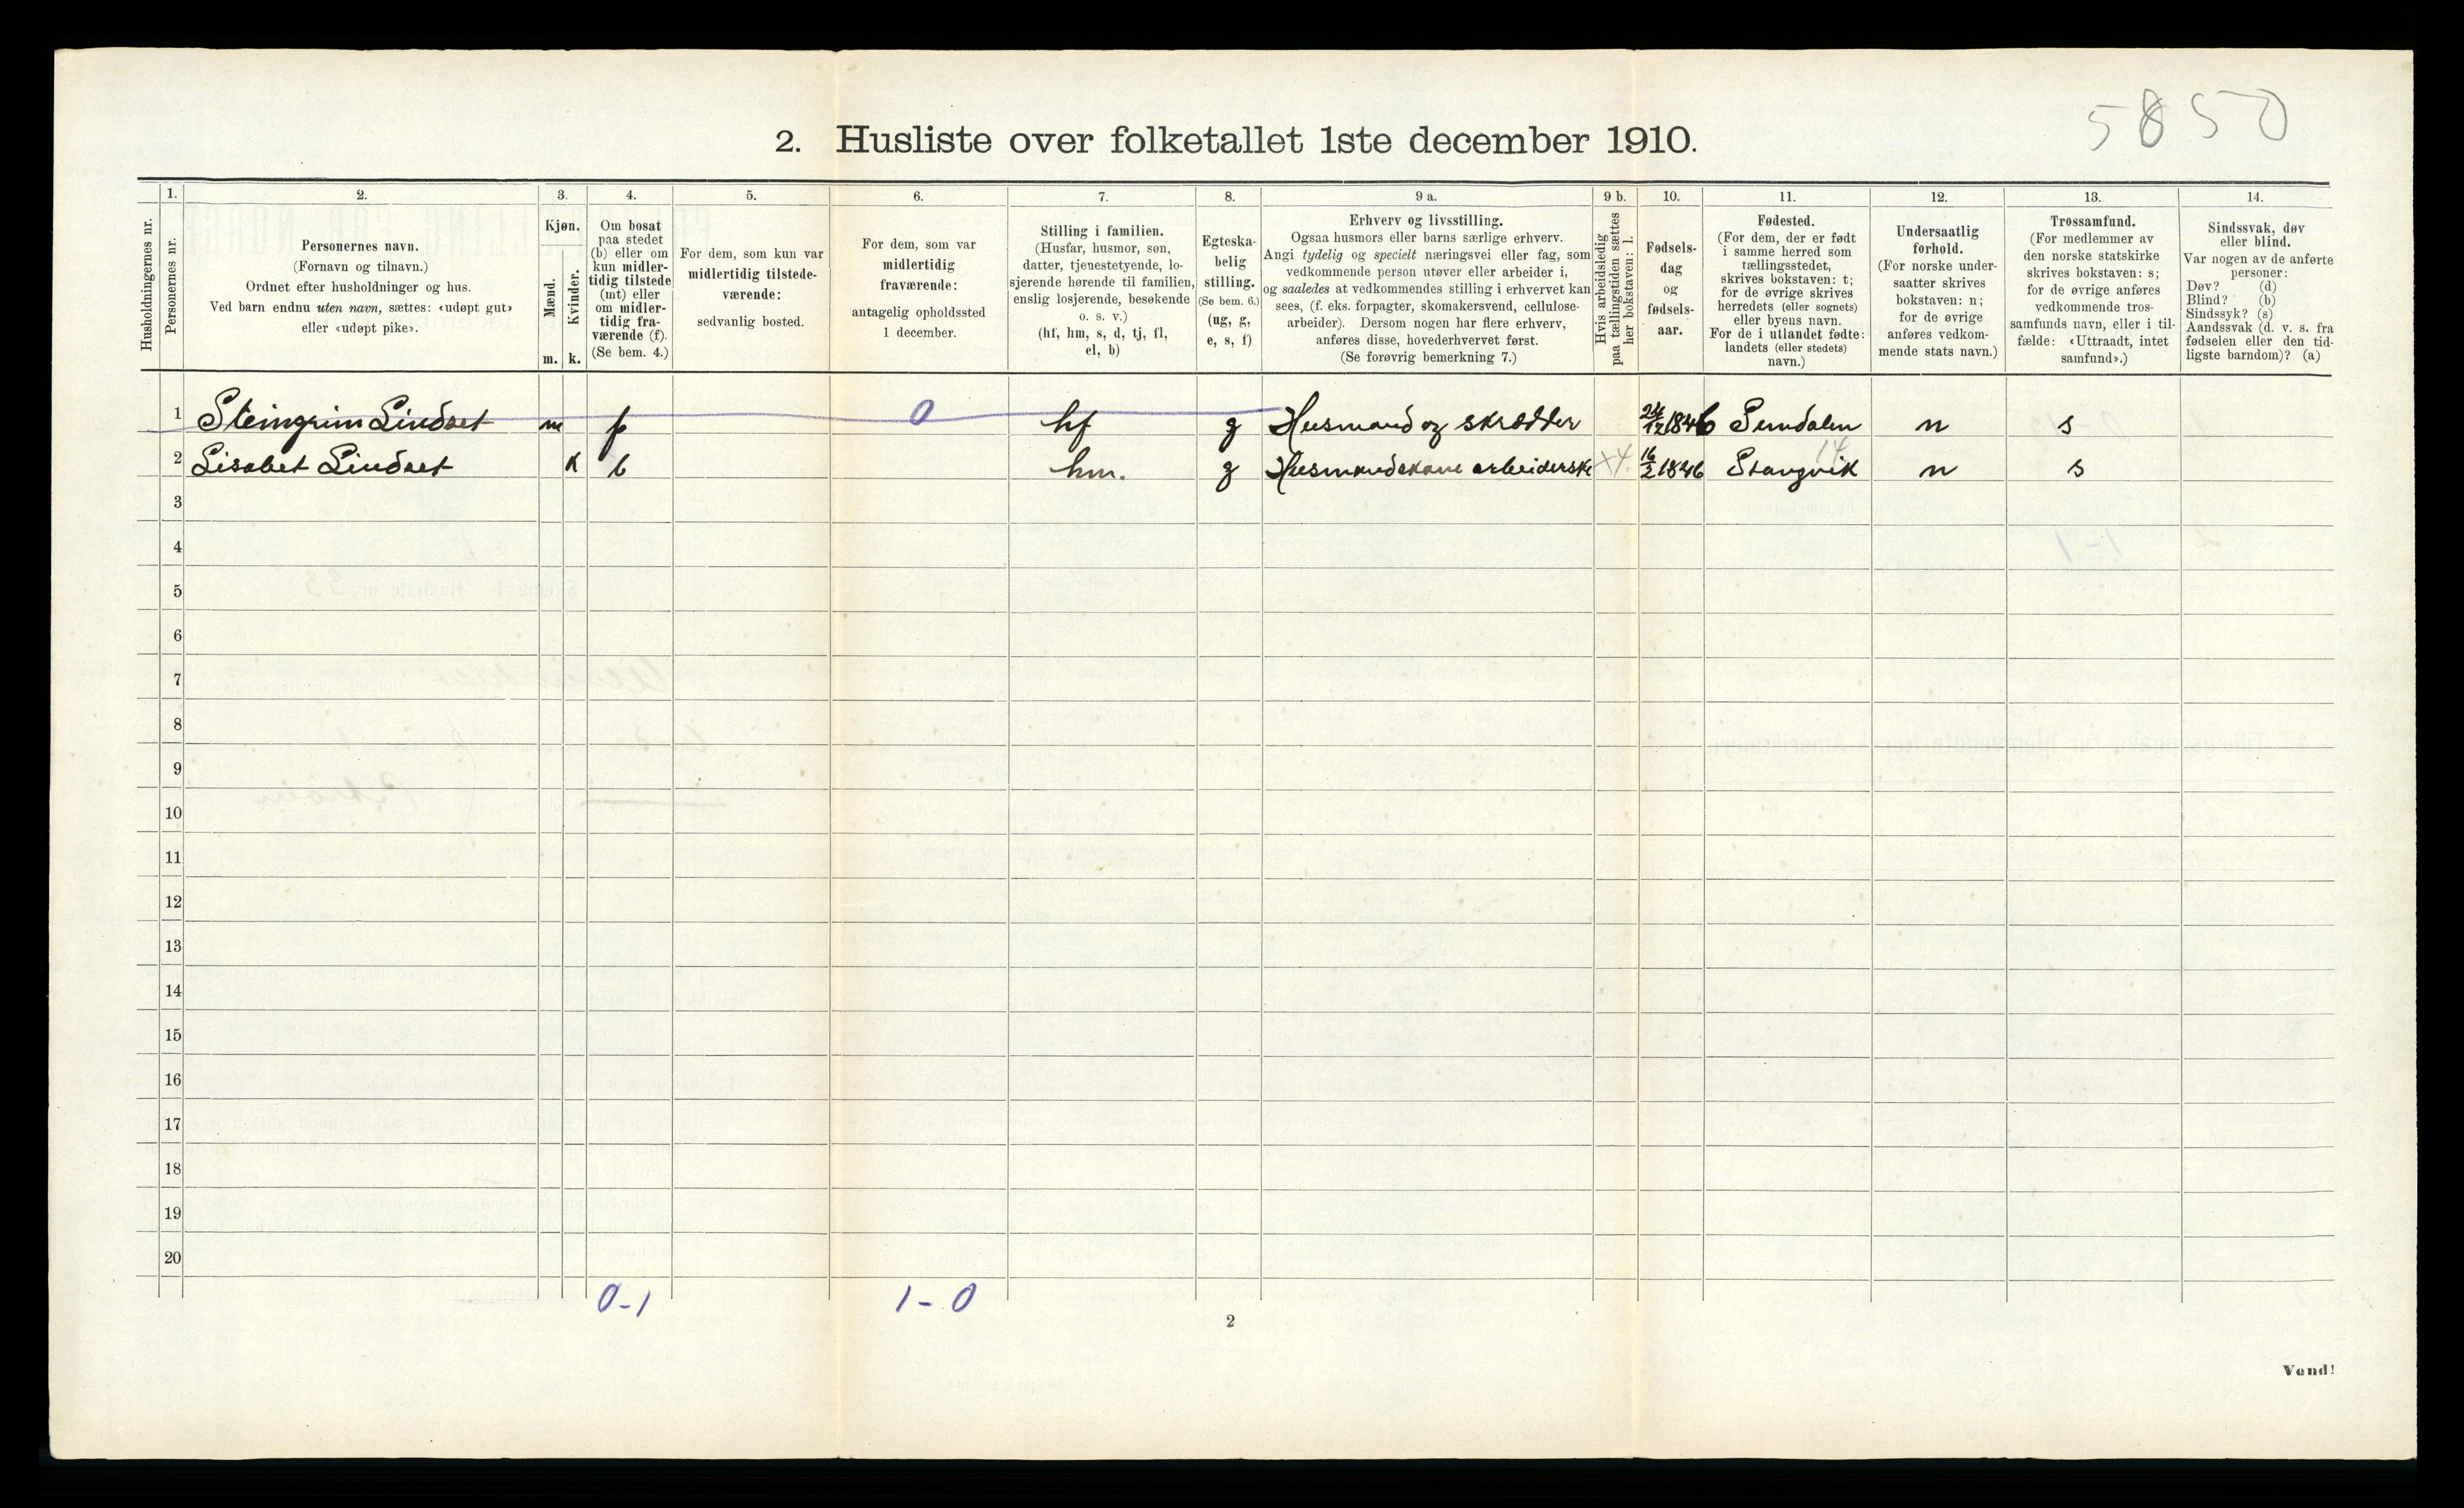 5850
2. Husliste over folketallet 1ste december 1910.
Husholdningernes nr.
1.
Personernes nr.
2.
Personernes navn.
(Fornavn og tilnavn.)
Ordnet efter husholdninger og hus.
Ved barn endnu uten navn, sættes: «udøpt gut»
eller «udøpt pike».
3.
Kjøn.
Mænd.
Kvinder.
m. k.
4.
Om bosat
paa stedet
(b) eller om
kun midler-
tidig tilstede
(mt) eller
om midler-
tidig fra-
værende (f).
(Se bem. 4.)
5.
For dem, som kun var
midlertidig tilstede-
værende:
sedvanlig bosted.
6.
For dem, som var
midlertidig
fraværende:
antagelig opholdssted
1 december.
7.
Stilling i familien.
(Husfar, husmor, søn,
datter, tjenestetyende, lo-
sjerende hørende til familien,
enslig losjerende, besøkende
o. s. v.)
(hf, hm, s, d, tj, fl,
el, b)
8.
Egteska-
belig
stilling.
(Se bem. 6.)
(ug, g,
e, s, f)
9 a.
Erhverv og livsstilling.
Ogsaa husmors eller barns særlige erhverv.
Angi tydelig og specielt næringsvei eller fag, som
vedkommende person utøver eller arbeider i,
og saaledes at vedkommendes stilling i erhvervet kan
sees, (f. eks. forpagter, skomakersvend, cellulose-
arbeider). Dersom nogen har flere erhverv,
anføres disse, hovederhvervet først.
(Se forøvrig bemerkning 7.)
9 b.
Hvis arbeidsledig
paa tællingstiden sættes
her bokstaven: l.
10.
Fødsels-
dag
og
fødsels-
aar.
11.
Fødested.
(For dem, der er født
i samme herred som
tællingsstedet,
skrives bokstaven: t;
for de øvrige skrives
herredets (eller sognets)
eller byens navn.
For de i utlandet fødte:
landets (eller stedets)
navn.)
12.
Undersaatlig
forhold.
(For norske under-
saatter skrives
bokstaven: n;
for de øvrige
anføres vedkom-
mende stats navn.)
13.
Trossamfund.
(For medlemmer av
den norske statskirke
skrives bokstaven: s;
for de øvrige anføres
vedkommende tros-
samfunds navn, eller i til-
fælde: «Uttraadt, intet
samfund».)
14.
Sindssvak, døv
eller blind.
Var nogen av de anførte
personer:
Døv? (d)
Blind? (b)
Sindssyk? (s)
Aandssvak (d. v. s. fra
fødselen eller den tid-
ligste barndom)? (a)
1 Steingrim Lindset m f 0 hf g Husmand og skrædder 24/12 1846 Sundalen n s
2 Lisabet Lindset k b hm. g Husmandskone arbeiderske x4. 16/2 1846 Stangvik 14 n s
3
4
5
6
7
8
9
10
11
12
13
14
15
16
17
18
19
20
0-1 1-0
2
Vend!